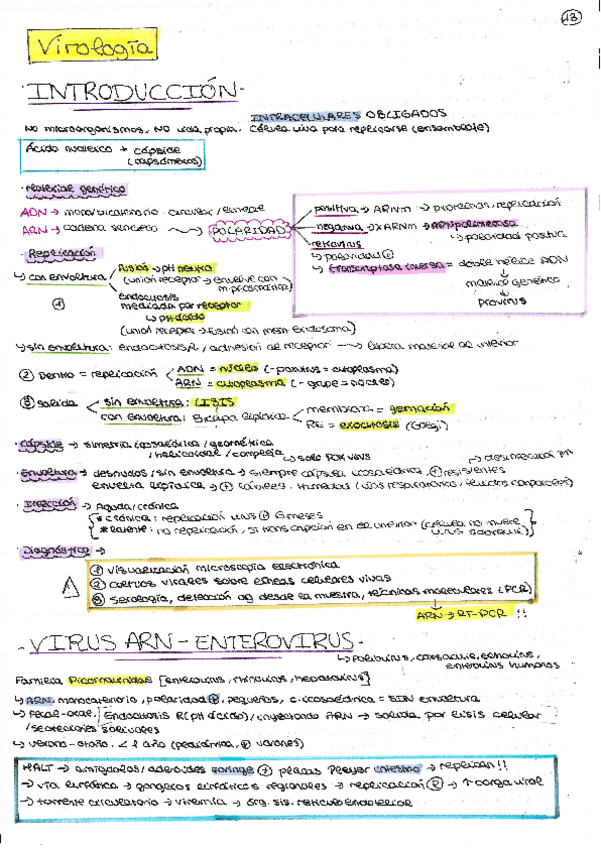 13
Virología
·INTRODUCCIÓN·
INTRACELULARES OBLIGADOS
NO microorganismos, NO vida propia. Célula viva para replicarse (ensamblaje)
Ácido nucleico + cápside
(capsómeros)
· Material genético
ADN → mono/bicatenario circular/lineal
ARN → cadena sencilla → POLARIDAD
positiva → ARNm → proteínas/replicación
negativa → ARNm → ARNpolimerasa
↳ polaridad positiva
retrovirus
↳ polaridad ⊕
↳ transcriptasa inversa = doble hélice ADN
↓
material genético
↓
provirus
· Replicación
↳ con envoltura
fusión → pH neutro
(unión receptor → envuelve con m.plasmática)
①
endocitosis
mediada por receptor
↳ pH ácido
(unión receptor → fusión con mem endosoma)
↳ sin envoltura: endocitosis R / adhesión al receptor → libera material al interior
② Dentro = replicación
ADN = núcleo (-poxvirus = citoplasma)
ARN = citoplasma (-gripe = núcleo)
③ Salida
sin envoltura: LISIS
con envoltura: Bicapa lipídica
membrana = gemación
RE = exocitosis (Golgi)
· Cápside → simetría icosaédrica/geométrica
/helicoidal/compleja
↳ solo POX VIRUS
· Envoltura → desnudos/sin envoltura → siempre cápsula icosaédrica, ⊕ resistentes
envuelta lipídica → ⊕ lábiles. Humedad (vías respiratorias/fluidos corporales)
· Infección → Aguda/crónica
* crónica: replicación virus ⊕ 6 meses
* latente: no replicación, sí transcripción en el interior (célula no muere
· Diagnóstico →
① Visualización microscopía electrónica
② cultivos virales sobre líneas celulares vivas
③ Serología, detección ag desde la muestra, técnicas moleculares (PCR)
ARN → RT-PCR !!
- VIRUS ARN - ENTEROVIRUS -
↳ Poliovirus, coxsackie, echovirus,
enterovirus humanos
Familia Picornaviridae [enterovirus, rhinovirus, hepatovirus]
↳ ARN, monocatenario, polaridad ⊕, pequeños, c.icosaédrica = SIN envoltura
↳ fecal-oral. Endocitosis R (pH ácido)/inyectando ARN → salida por lisis celular
/secreciones salivales
↳ verano-otoño, < 1 año (pediátrica, ⊕ varones)
MALT → amígdalas/adenoides faringe ⊕ placas Peyer intestino → replican!!
→ vía linfática → ganglios linfáticos regionales → replicación ② → ↑ carga viral
→ torrente circulatorio → viremia → órg. sis. retículo endotelial